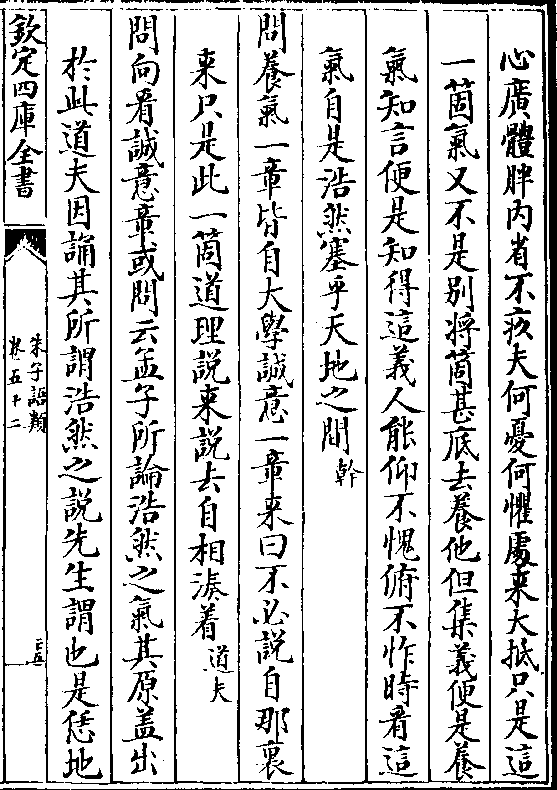 心廣體胖内省不疚夫何憂何懼處来大抵只是這
一箇氣又不是别將箇甚底去養他但集義便是養
氣知言便是知得這義人能仰不愧俯不怍時看這
氣自是浩然塞乎天地之間 幹
問養氣一章皆自大學誠意一章来曰不必説自那裏
来只是此一箇道理説来説去自相湊着 道夫
問向看誠意章或問云孟子所論浩然之氣其原盖出
於此道夫因誦其所謂浩然之説先生謂也是恁地
欽定四庫全書
朱子語類
卷五十二